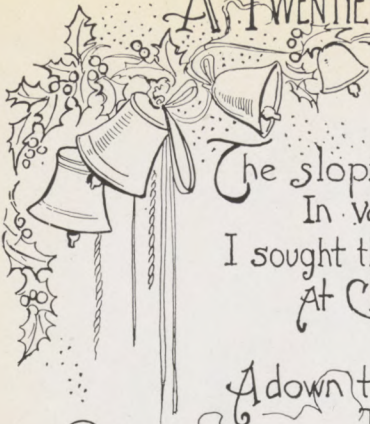 A TWENTIE
The slopi
In v
I sought t
At C
Adown t